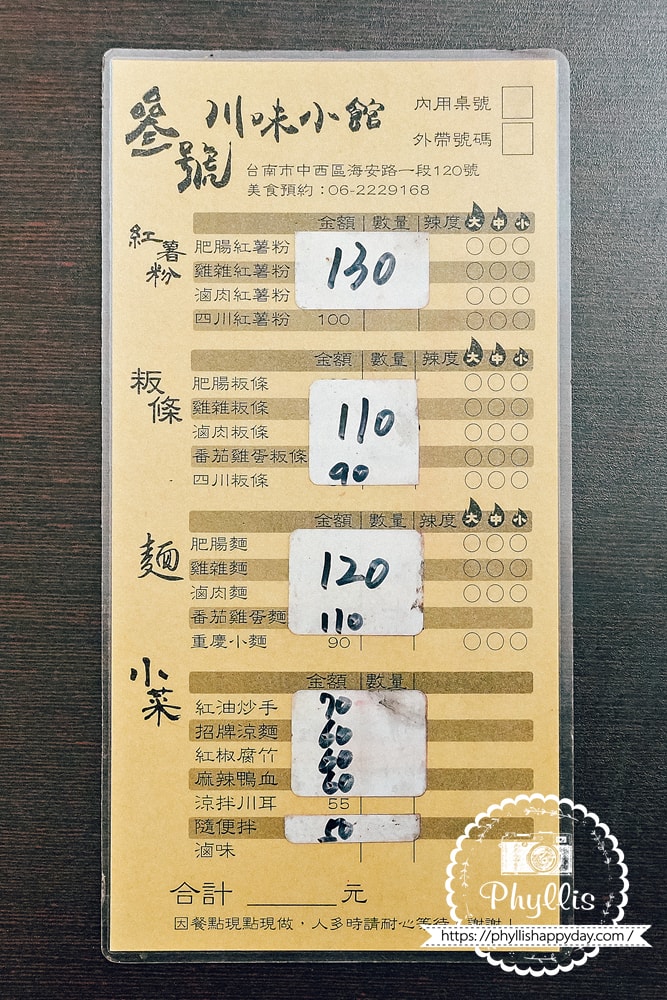 叄號 川味小館
內用桌號
外帶號碼
台南市中西區海安路一段120號
美食預約：06-2229168
紅薯粉
金額 數量 辣度 大 中 小
肥腸紅薯粉
雞雜紅薯粉 130
滷肉紅薯粉
四川紅薯粉 100
粄條
金額 數量 辣度 大 中 小
肥腸粄條
雞雜粄條 110
滷肉粄條
番茄雞蛋粄條
四川粄條 90
麵
金額 數量 辣度 大 中 小
肥腸麵
雞雜麵 120
滷肉麵
番茄雞蛋麵 110
重慶小麵 90
小菜
金額 數量
紅油炒手 70
招牌涼麵 60
紅椒腐竹 60
麻辣鴨血 60
涼拌川耳 55
隨便拌 50
滷味
合計 元
因餐點現點現做，人多時請耐心等待，謝謝！
Phyllis
https://phyllishappyday.com/